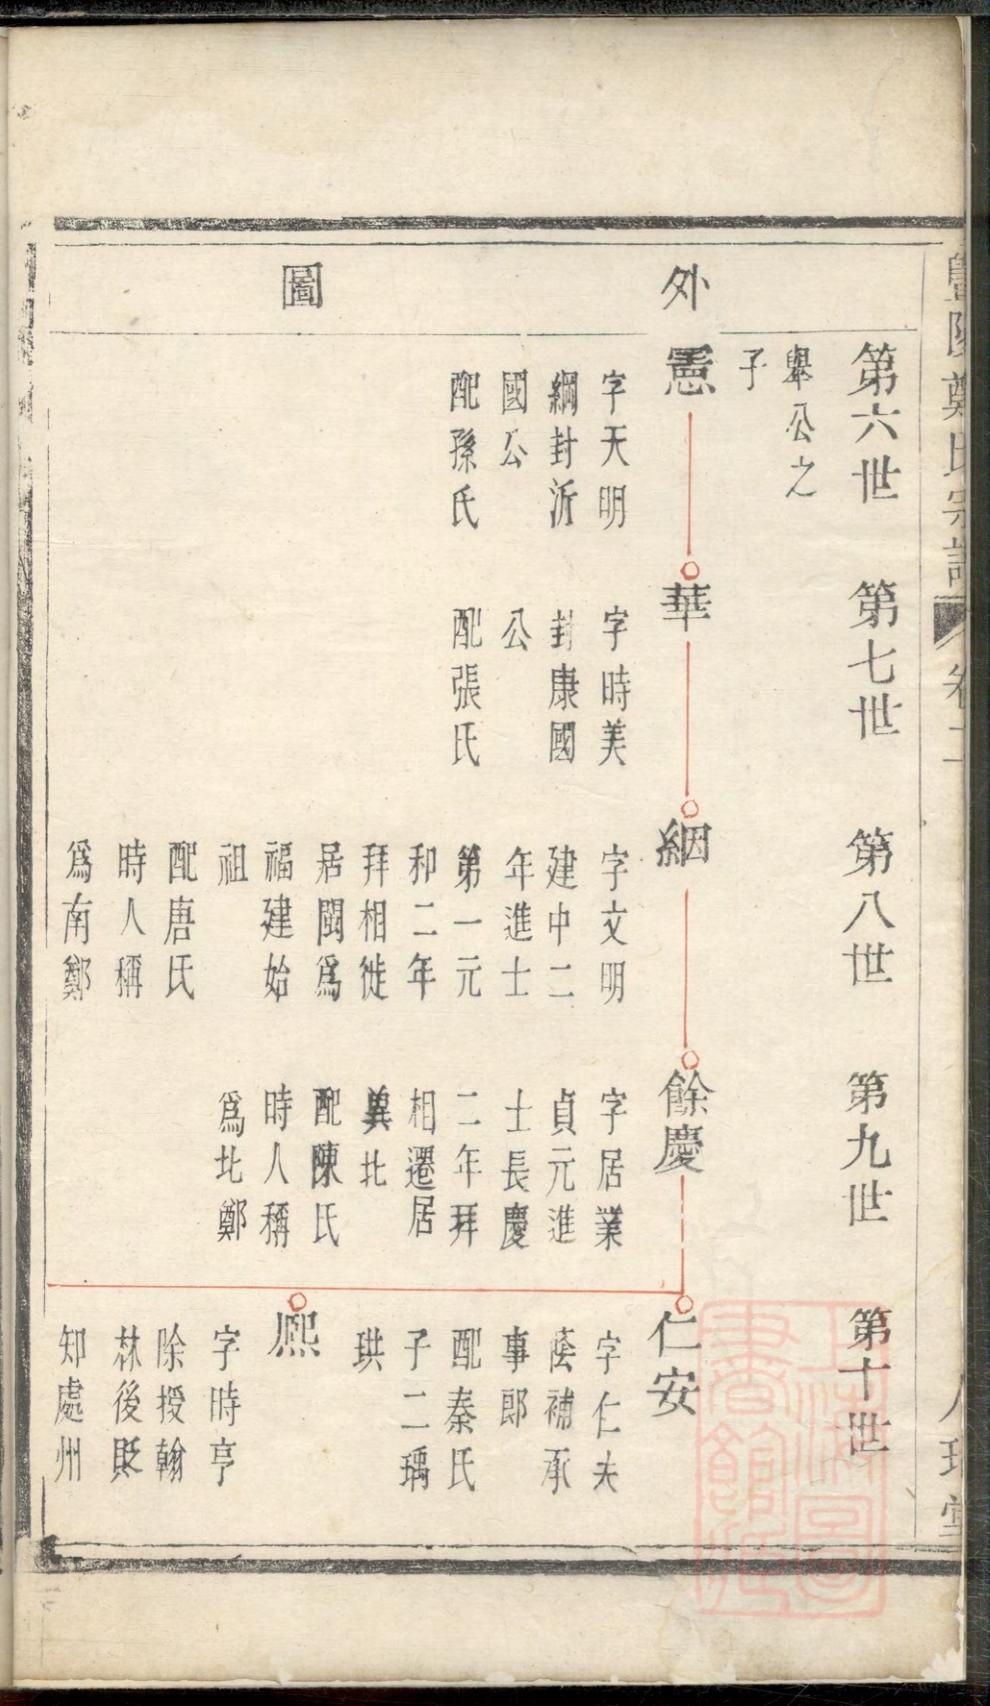 鄭氏宗譜
卷二
外
圖
第六世
第七世
第八世
第九世
第十世
舉公之
子
憲
字天明
綱封沂
國公
配孫氏
華
字時美
封康國
公
配張氏
絪
字文明
建中二
年進士
第一元
和二年
拜相徙
居閩爲
福建始
祖
配唐氏
時人稱
爲南鄭
餘慶
字居業
貞元進
士長慶
二年拜
相遷居
冀北
配陳氏
時人稱
爲北鄭
仁安
字仁夫
蔭補承
事郎
配秦氏
子二瑀
珙
熈
字時亨
除授翰
林後貶
知處州
上海圖
書館藏